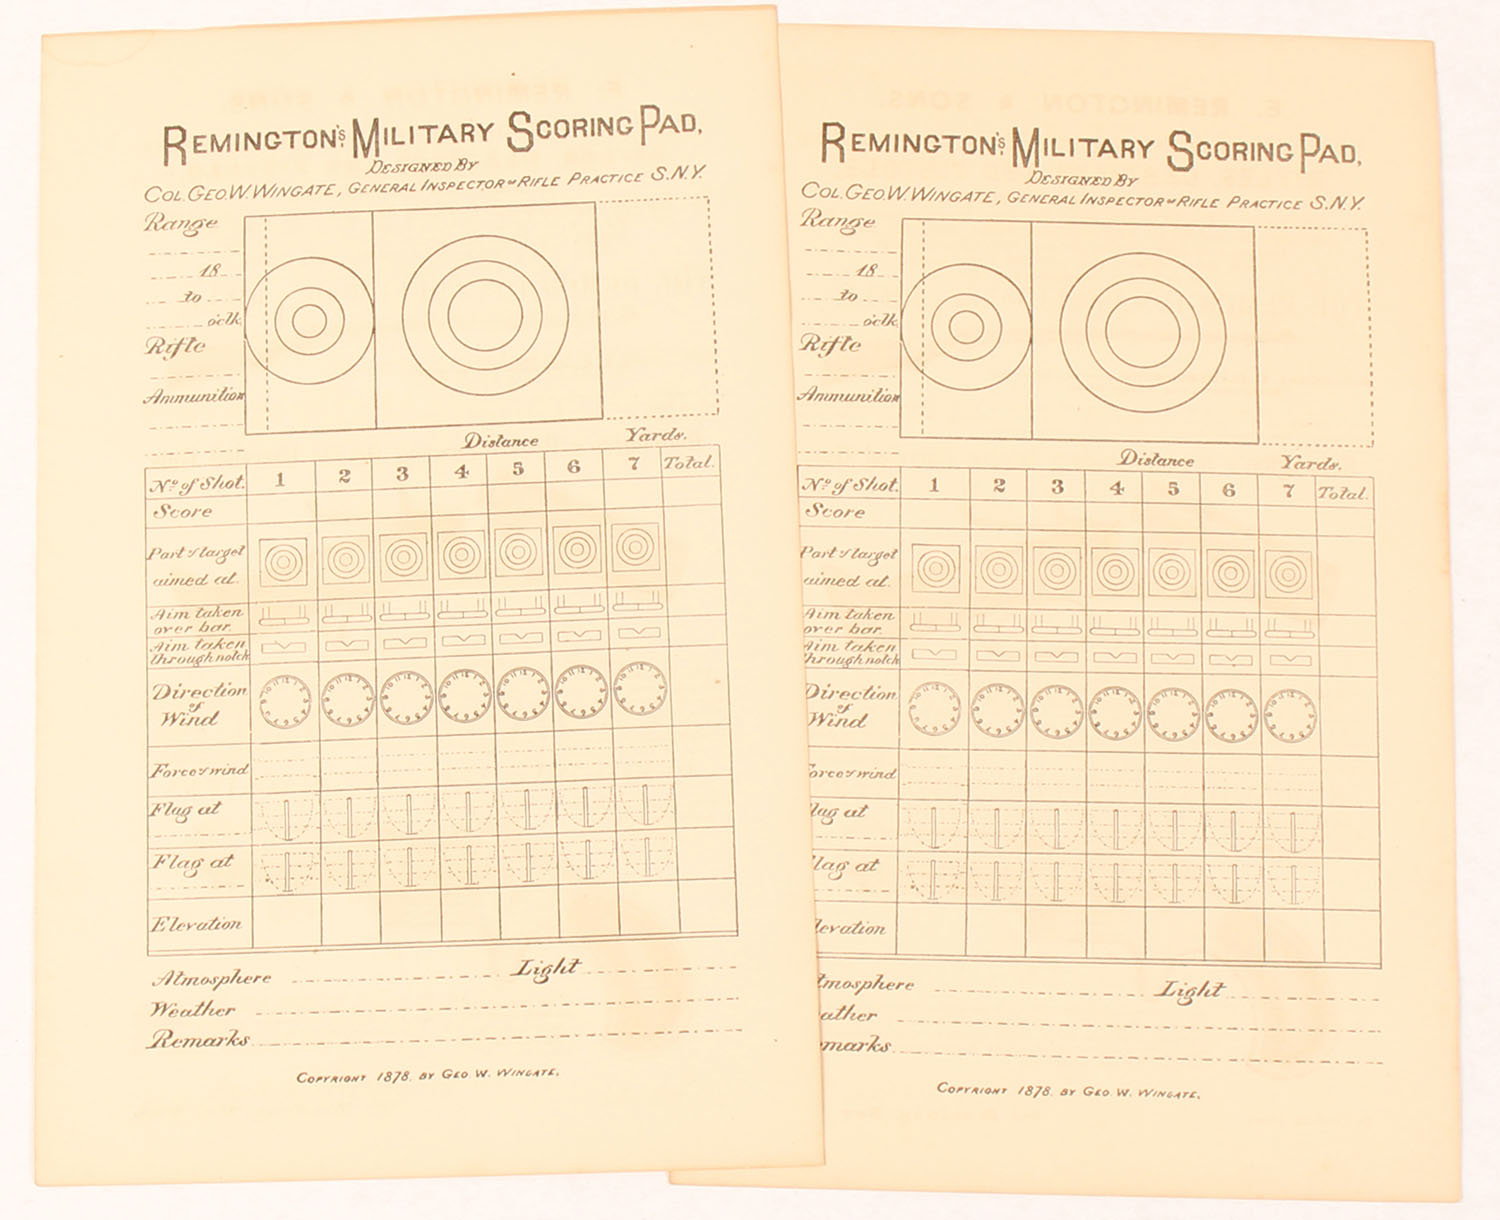 REMINGTON'S MILITARY SCORING PAD,
DESIGNED BY
COL. GEO. W. WINGATE, GENERAL INSPECTOR OF RIFLE PRACTICE S.N.Y.
Range
18
to
o'clk.
Rifle
Ammunition
Distance Yards.
No. of Shot. 1 2 3 4 5 6 7 Total.
Score
Part of target
aimed at.
Aim taken
over bar.
Aim taken
through notch
Direction
of
Wind
Force of wind
Flag at
Flag at
Elevation
Atmosphere Light
Weather
Remarks
COPYRIGHT 1878. BY GEO. W. WINGATE.
E. REMINGTON & SONS.
REMINGTON'S MILITARY SCORING PAD,
DESIGNED BY
COL. GEO. W. WINGATE, GENERAL INSPECTOR OF RIFLE PRACTICE S.N.Y.
Range
18
to
o'clk.
Rifle
Ammunition
Distance Yards.
No. of Shot. 1 2 3 4 5 6 7 Total.
Score
Part of target
aimed at.
Aim taken
over bar.
Aim taken
through notch
Direction
of
Wind
orce of wind
lag at
lag at
levation
tmosphere Light
ather
emarks
COPYRIGHT 1878. BY GEO. W. WINGATE.